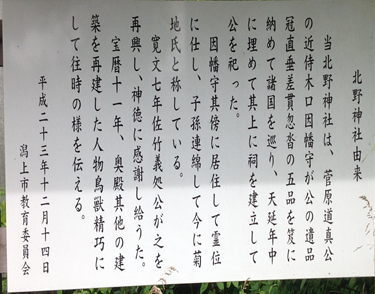 北野神社由来
当北野神社は、菅原道真公
の近侍木口因幡守が公の遺品
冠直垂差貫忽沓の五品を笈に
納めて諸国を巡り、天延年中
に埋めて其上に祠を建立して
公を祀った。
因幡守其傍に居住して霊位
に仕し、子孫連綿して今に菊
地氏と称している。
寛文七年佐竹義処公が之を
再興し、神徳に感謝し給うた。
宝暦十一年、奥殿其他の建
築を再建した人物鳥獣精巧に
して往時の様を伝える。
平成二十三年十二月十四日
潟上市教育委員会